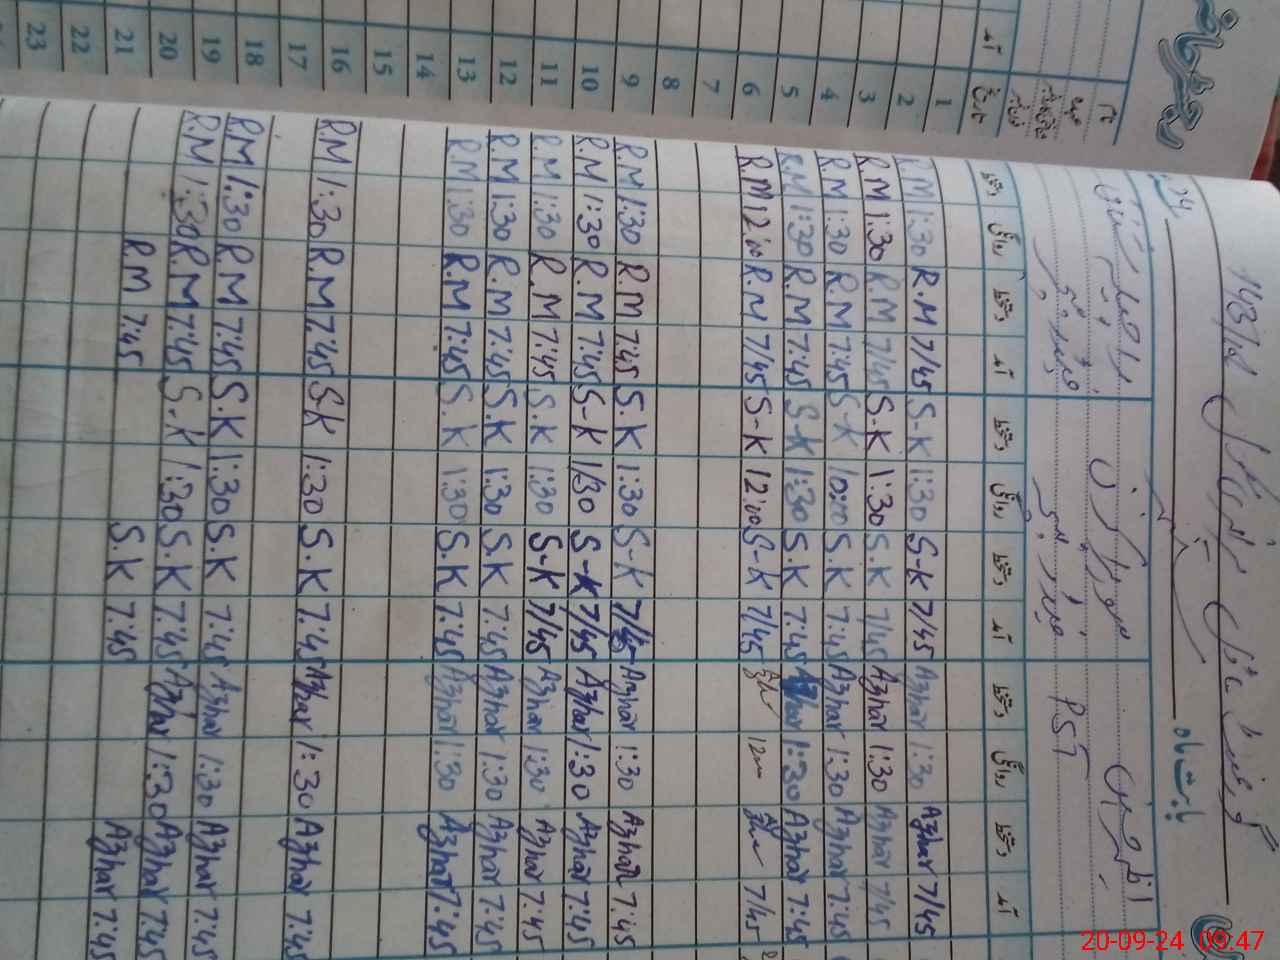 بابت ماہ
24
PST
نام
عہدہ
تاریخ آمد
دستخط روانگی دستخط آمد دستخط روانگی دستخط آمد دستخط روانگی دستخط آمد
1
2 R.M 1:30 R.M 7/45 S-K 1:30 S-K 7/45 Azhar 1:30 Azhar 7/45
3 R.M 1:30 R.M 7/45 S.K 1:30 S.K 7/45 Azhar 1:30 Azhar 7/45
4 R.M 1:30 R.M 7:45 S-K 10:00 S.K 7:45 Azhar 1:30 Azhar 7:45
5 R.M 1:30 R.M 7:45 S-K 1:30 S.K 7:45 Azhar 1:30 Azhar 7:45
6 R.M 12:00 R.M 7/45 S-K 12:00 S-K 7/45 7/45
7
8
9 R.M 1:30 R.M 7:45 S.K 1:30 S-K 7/45 Azhar 1:30 Azhar 7:45
10 R.M 1:30 R.M 7:45 S-K 1/30 S-K 7/45 Azhar 1:30 Azhar 7:45
11 R.M 1:30 R.M 7:45 S.K 1:30 S-K 7/45 Azhar 1:30 Azhar 7:45
12 R.M 1:30 R.M 7:45 S.K 1:30 S.K 7:45 Azhar 1:30 Azhar 7:45
13 R.M 1:30 R.M 7:45 S.K 1:30 S.K 7:45 Azhar 1:30 Azhar 7:45
14
15
16 R.M 1:30 R.M 7:45 S.K 1:30 S.K 7:45 Azhar 1:30 Azhar 7:45
17
18 R.M 1:30 R.M 7:45 S.K 1:30 S.K 7:45 Azhar 1:30 Azhar 7:45
19 R.M 1:30 R.M 7:45 S-K 1:30 S.K 7:45 Azhar 1:30 Azhar 7:45
20 R.M 7:45 S.K 7:45 Azhar 7:45
21
22
23
20-09-24 09:47